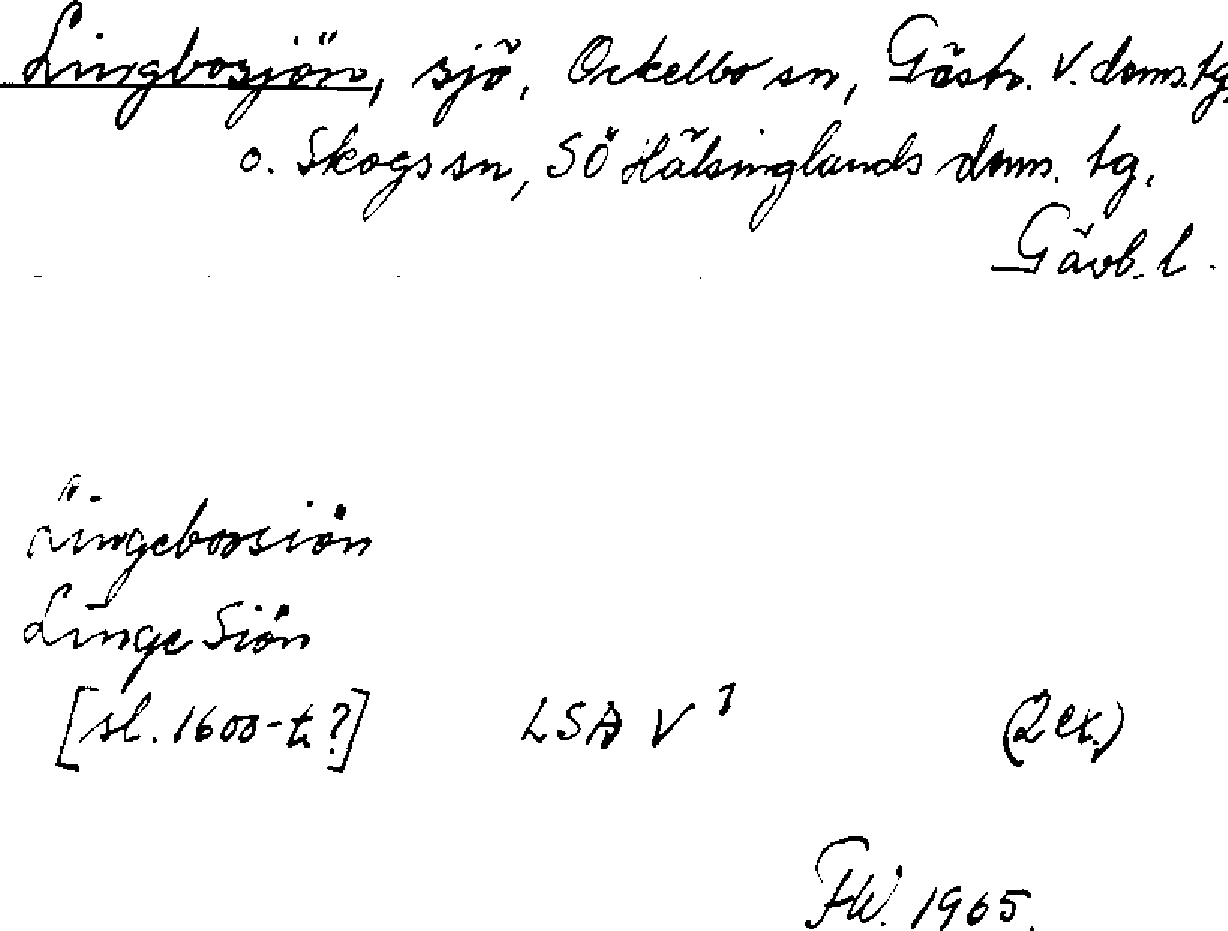 Lingbosjön, sjö, Ockelbo sn, Gästr. V. doms.tg.
o. Skogs sn, SÖ Hälsinglands doms. tg,
Gävb. l.
Lingebosiön
Linge Siön
[sl. 1600-t.?] LSA V¹ (2 ex.)
FW. 1965.